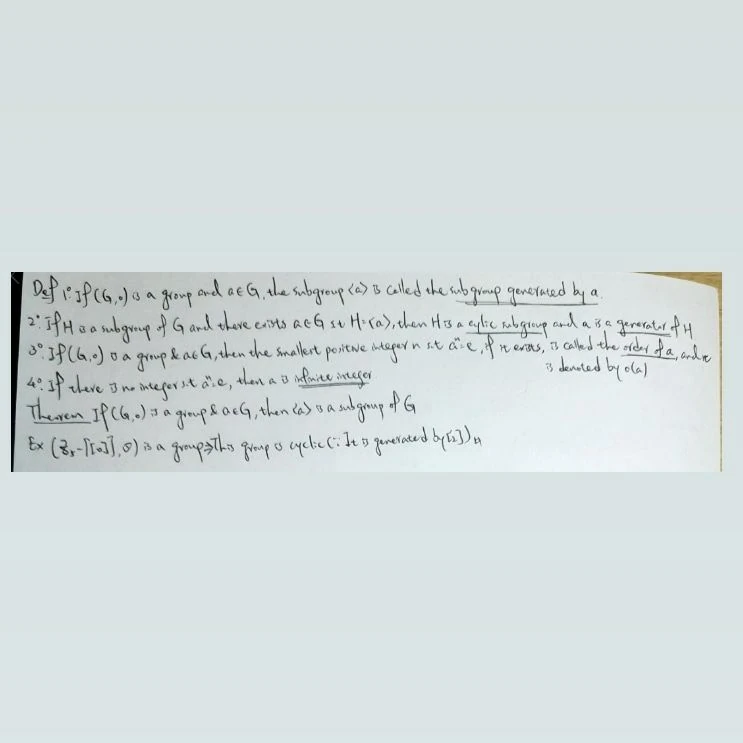 Def 1°: If (G,∘) is a group and a∈G, the subgroup <a> is called the subgroup generated by a.
2°: If H is a subgroup of G and there exists a∈G s.t H=<a>, then H is a cylic subgroup and a is a generator of H
3°: If (G,∘) is a group & a∈G, then the smallest positive integer n s.t aⁿ=e, if it exists, is called the order of a, and it
is denoted by o(a)
4°: If there is no integer s.t aⁿ=e, then a is infinite integer
Theorem If (G,∘) is a group & a∈G, then <a> is a subgroup of G
Ex (ℤ₅-{[0]},⊙) is a group⇒This group is cyclic (∵ It is generated by [2])